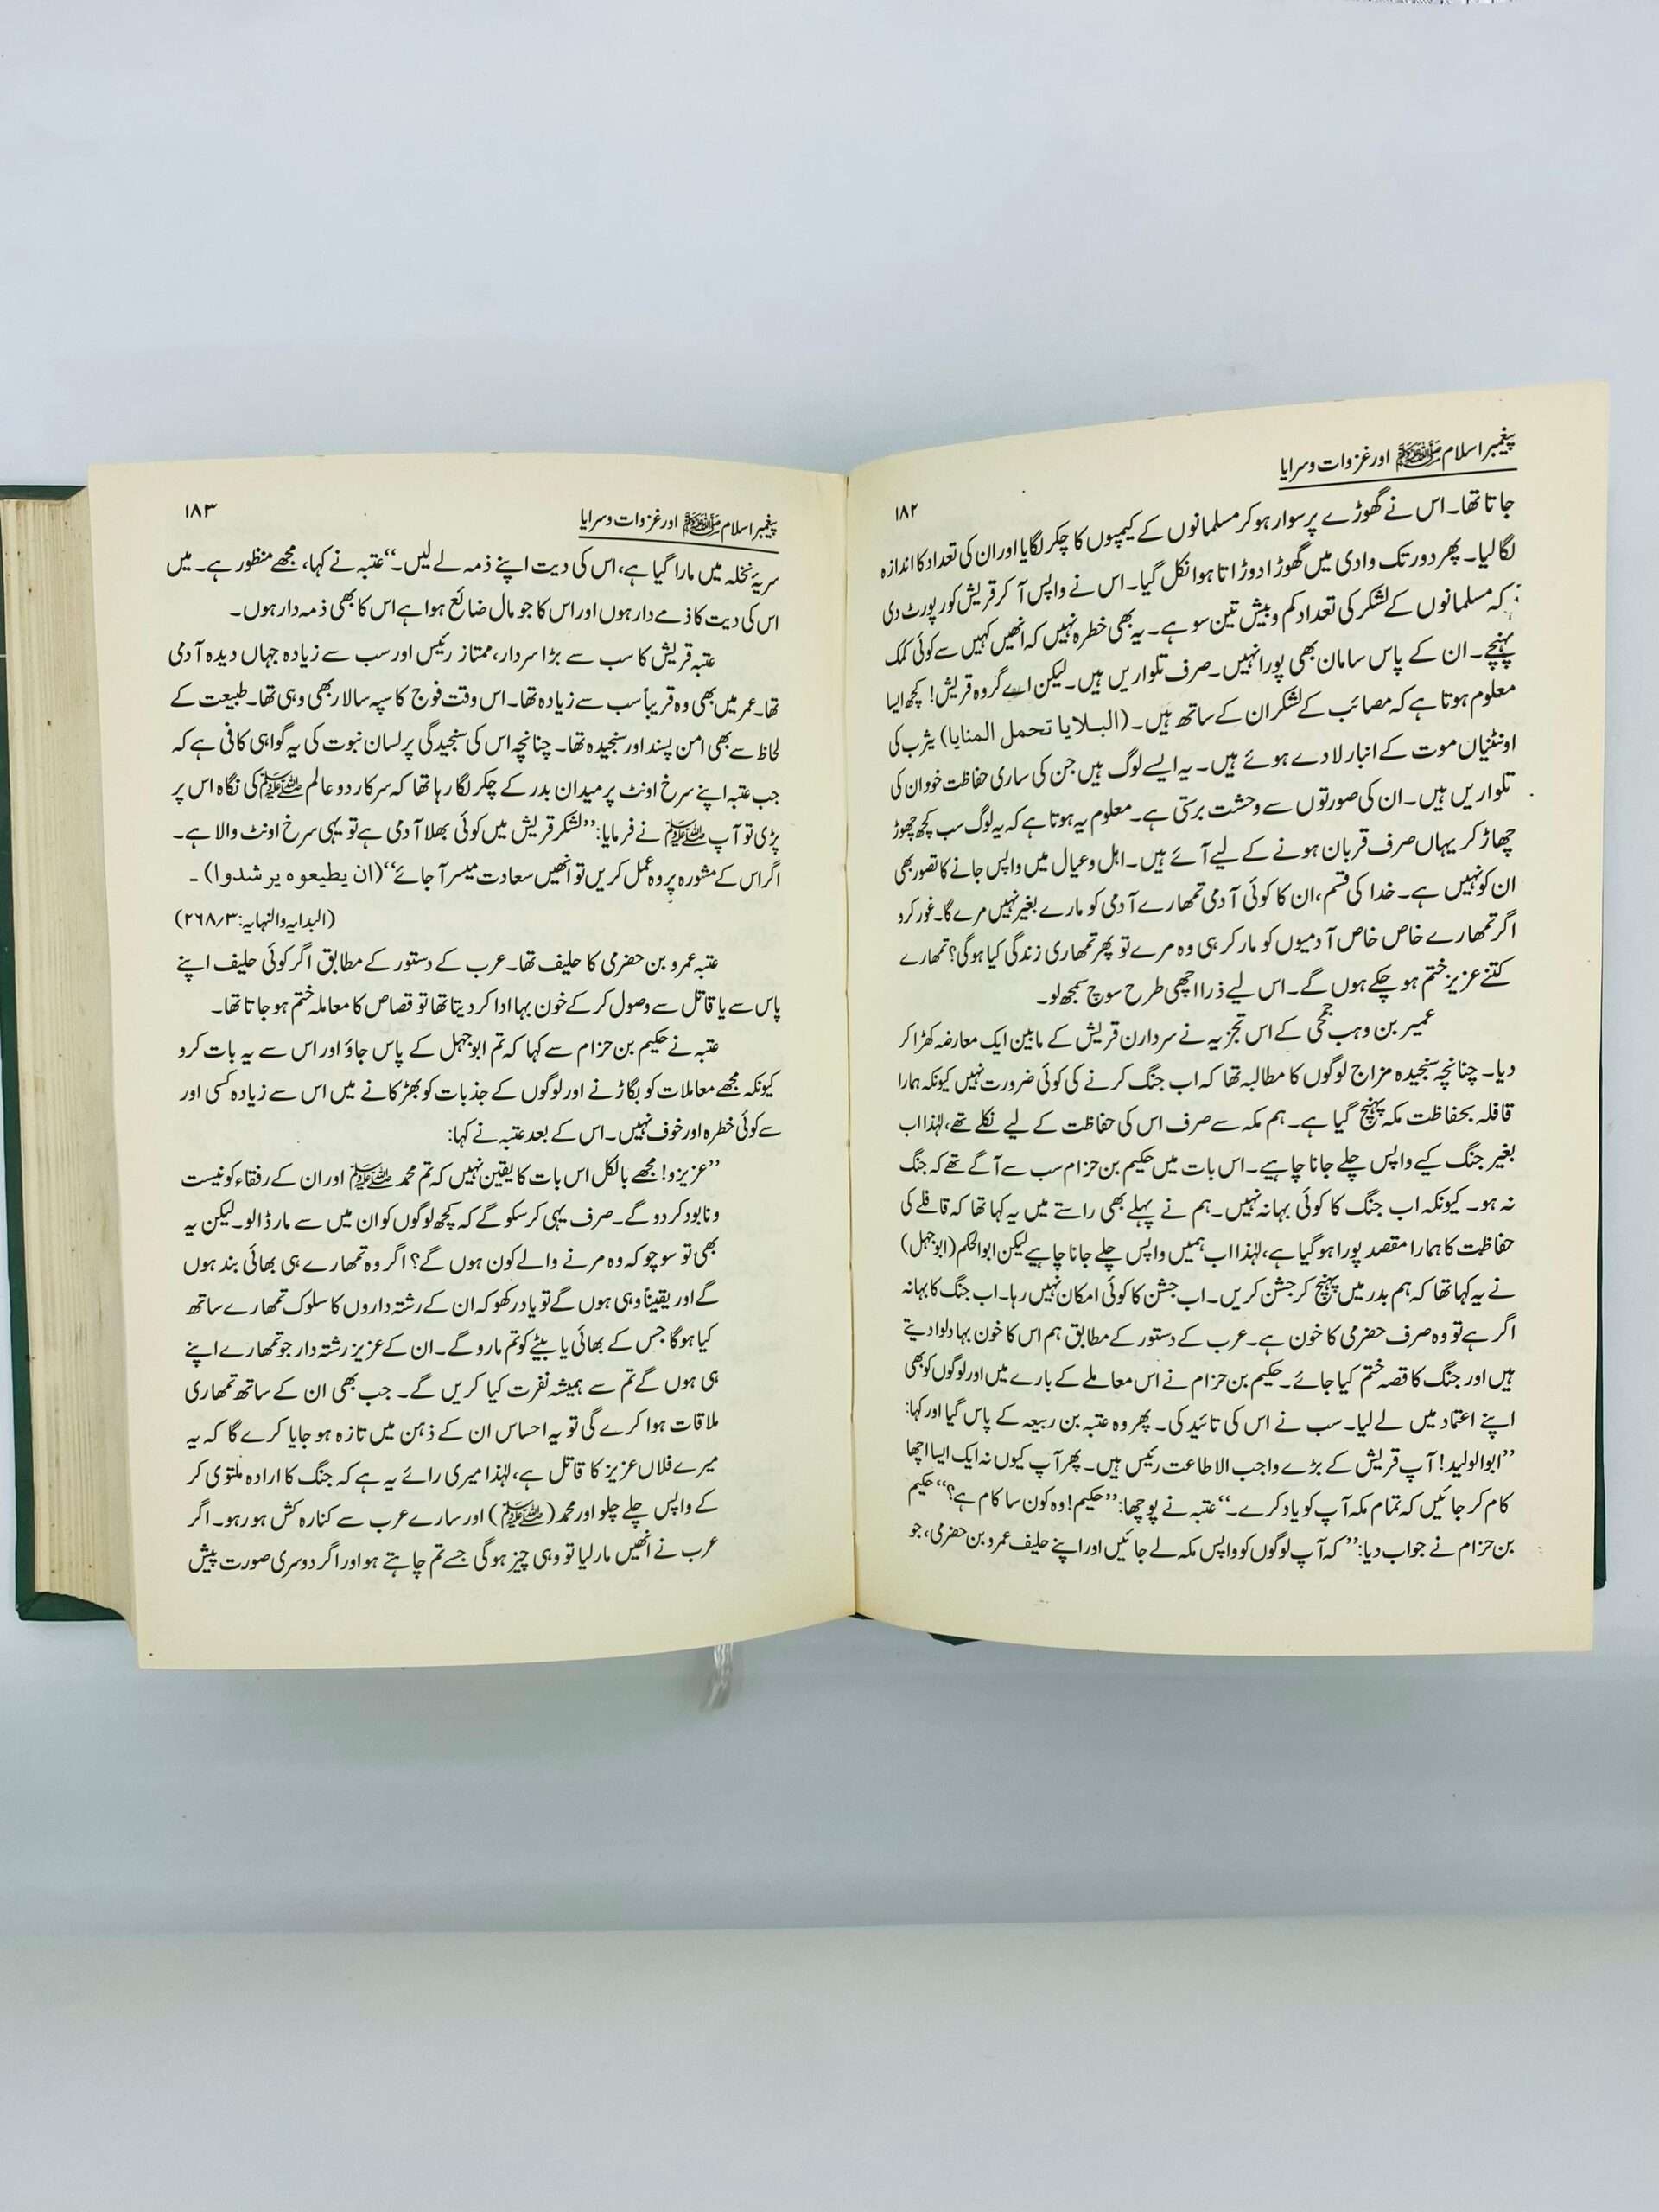 پیغمبر اسلام ﷺ اور غزوات و سرایا
۱۸۲
جاتا تھا۔ اس نے گھوڑے پر سوار ہو کر مسلمانوں کے کیمپوں کا چکر لگایا اور ان کی تعداد کا اندازہ
لگا لیا۔ پھر دور تک وادی میں گھوڑا دوڑاتا ہوا نکل گیا۔ اس نے واپس آ کر قریش کو رپورٹ دی
کہ مسلمانوں کے لشکر کی تعداد کم و بیش تین سو ہے۔ یہ بھی خطرہ نہیں کہ انھیں کہیں سے کوئی کمک
پہنچے۔ ان کے پاس سامان بھی پورا نہیں۔ صرف تلواریں ہیں۔ لیکن اے گروہ قریش! کچھ ایسا
معلوم ہوتا ہے کہ مصائب کے لشکر ان کے ساتھ ہیں۔ (البلایا تحمل المنایا) یثرب کی
اونٹنیاں موت کے انبار لادے ہوئے ہیں۔ یہ ایسے لوگ ہیں جن کی ساری حفاظت خود ان کی
تلواریں ہیں۔ ان کی صورتوں سے وحشت برستی ہے۔ معلوم یہ ہوتا ہے کہ یہ لوگ سب کچھ چھوڑ
چھاڑ کر یہاں صرف قربان ہونے کے لیے آئے ہیں۔ اہل و عیال میں واپس جانے کا تصور بھی
ان کو نہیں ہے۔ خدا کی قسم، ان کا کوئی آدمی تمھارے آدمی کو مارے بغیر نہیں مرے گا۔ غور کرو
اگر تمھارے خاص خاص آدمیوں کو مار کر ہی وہ مرے تو پھر تمھاری زندگی کیا ہوگی؟ تمھارے
کتنے عزیز ختم ہو چکے ہوں گے۔ اس لیے ذرا اچھی طرح سوچ سمجھ لو۔
عمیر بن وہب جمحی کے اس تجزیہ نے سردارن قریش کے مابین ایک معارضہ کھڑا کر
دیا۔ چنانچہ سنجیدہ مزاج لوگوں کا مطالبہ تھا کہ اب جنگ کرنے کی کوئی ضرورت نہیں کیونکہ ہمارا
قافلہ بحفاظت مکہ پہنچ گیا ہے۔ ہم مکہ سے صرف اس کی حفاظت کے لیے نکلے تھے، لہٰذا اب
بغیر جنگ کیے واپس چلے جانا چاہیے۔ اس بات میں حکیم بن حزام سب سے آگے تھے کہ جنگ
نہ ہو۔ کیونکہ اب جنگ کا کوئی بہانہ نہیں۔ ہم نے پہلے بھی راستے میں یہ کہا تھا کہ قافلے کی
حفاظت کا ہمارا مقصد پورا ہو گیا ہے، لہٰذا اب ہمیں واپس چلے جانا چاہیے لیکن ابوالحکم (ابوجہل)
نے یہ کہا تھا کہ ہم بدر میں پہنچ کر جشن کریں۔ اب جشن کا کوئی امکان نہیں رہا۔ اب جنگ کا بہانہ
اگر ہے تو وہ صرف حضرمی کا خون ہے۔ عرب کے دستور کے مطابق ہم اس کا خون بہا دلوا دیتے
ہیں اور جنگ کا قصہ ختم کیا جائے۔ حکیم بن حزام نے اس معاملے کے بارے میں اور لوگوں کو بھی
اپنے اعتماد میں لے لیا۔ سب نے اس کی تائید کی۔ پھر وہ عتبہ بن ربیعہ کے پاس گیا اور کہا:
”ابوالولید! آپ قریش کے بڑے واجب الاطاعت رئیس ہیں۔ پھر آپ کیوں نہ ایک ایسا اچھا
کام کر جائیں کہ تمام مکہ آپ کو یاد کرے۔“ عتبہ نے پوچھا: ”حکیم! وہ کون سا کام ہے؟“ حکیم
بن حزام نے جواب دیا: ”کہ آپ لوگوں کو واپس مکہ لے جائیں اور اپنے حلیف عمرو بن حضرمی، جو
پیغمبر اسلام ﷺ اور غزوات و سرایا
۱۸۳
سریۂ نخلہ میں مارا گیا ہے، اس کی دیت اپنے ذمہ لے لیں۔“ عتبہ نے کہا، مجھے منظور ہے۔ میں
اس کی دیت کا ذمے دار ہوں اور اس کا جو مال ضائع ہوا ہے اس کا بھی ذمہ دار ہوں۔
عتبہ قریش کا سب سے بڑا سردار، ممتاز رئیس اور سب سے زیادہ جہاں دیدہ آدمی
تھا۔ عمر میں بھی وہ قریباً سب سے زیادہ تھا۔ اس وقت فوج کا سپہ سالار بھی وہی تھا۔ طبیعت کے
لحاظ سے بھی امن پسند اور سنجیدہ تھا۔ چنانچہ اس کی سنجیدگی پر لسان نبوت کی یہ گواہی کافی ہے کہ
جب عتبہ اپنے سرخ اونٹ پر میدان بدر کے چکر لگا رہا تھا کہ سرکار دو عالم ﷺ کی نگاہ اس پر
پڑی تو آپ ﷺ نے فرمایا: ”لشکر قریش میں کوئی بھلا آدمی ہے تو یہی سرخ اونٹ والا ہے۔
اگر اس کے مشورہ پر وہ عمل کریں تو انھیں سعادت میسر آ جائے“ (ان یطیعوہ یرشدوا)۔
(البدایہ والنہایہ: ۳/۲۶۸)
عتبہ عمرو بن حضرمی کا حلیف تھا۔ عرب کے دستور کے مطابق اگر کوئی حلیف اپنے
پاس سے یا قاتل سے وصول کر کے خون بہا ادا کر دیتا تھا تو قصاص کا معاملہ ختم ہو جاتا تھا۔
عتبہ نے حکیم بن حزام سے کہا کہ تم ابوجہل کے پاس جاؤ اور اس سے یہ بات کرو
کیونکہ مجھے معاملات کو بگاڑنے اور لوگوں کے جذبات کو بھڑکانے میں اس سے زیادہ کسی اور
سے کوئی خطرہ اور خوف نہیں۔ اس کے بعد عتبہ نے کہا:
”عزیزو! مجھے بالکل اس بات کا یقین نہیں کہ تم محمد ﷺ اور ان کے رفقاء کو نیست
و نابود کر دو گے۔ صرف یہی کر سکو گے کہ کچھ لوگوں کو ان میں سے مار ڈالو۔ لیکن یہ
بھی تو سوچو کہ وہ مرنے والے کون ہوں گے؟ اگر وہ تمھارے ہی بھائی بند ہوں
گے اور یقیناً وہی ہوں گے تو یاد رکھو کہ ان کے رشتہ داروں کا سلوک تمھارے ساتھ
کیا ہوگا جس کے بھائی یا بیٹے کو تم مارو گے۔ ان کے عزیز رشتہ دار جو تمھارے اپنے
ہی ہوں گے تم سے ہمیشہ نفرت کیا کریں گے۔ جب بھی ان کے ساتھ تمھاری
ملاقات ہوا کرے گی تو یہ احساس ان کے ذہن میں تازہ ہو جایا کرے گا کہ یہ
میرے فلاں عزیز کا قاتل ہے، لہٰذا میری رائے یہ ہے کہ جنگ کا ارادہ ملتوی کر
کے واپس چلے چلو اور محمد (ﷺ) اور سارے عرب سے کنارہ کش ہو رہو۔ اگر
عرب نے انھیں مار لیا تو وہی چیز ہوگی جسے تم چاہتے ہو اور اگر دوسری صورت پیش